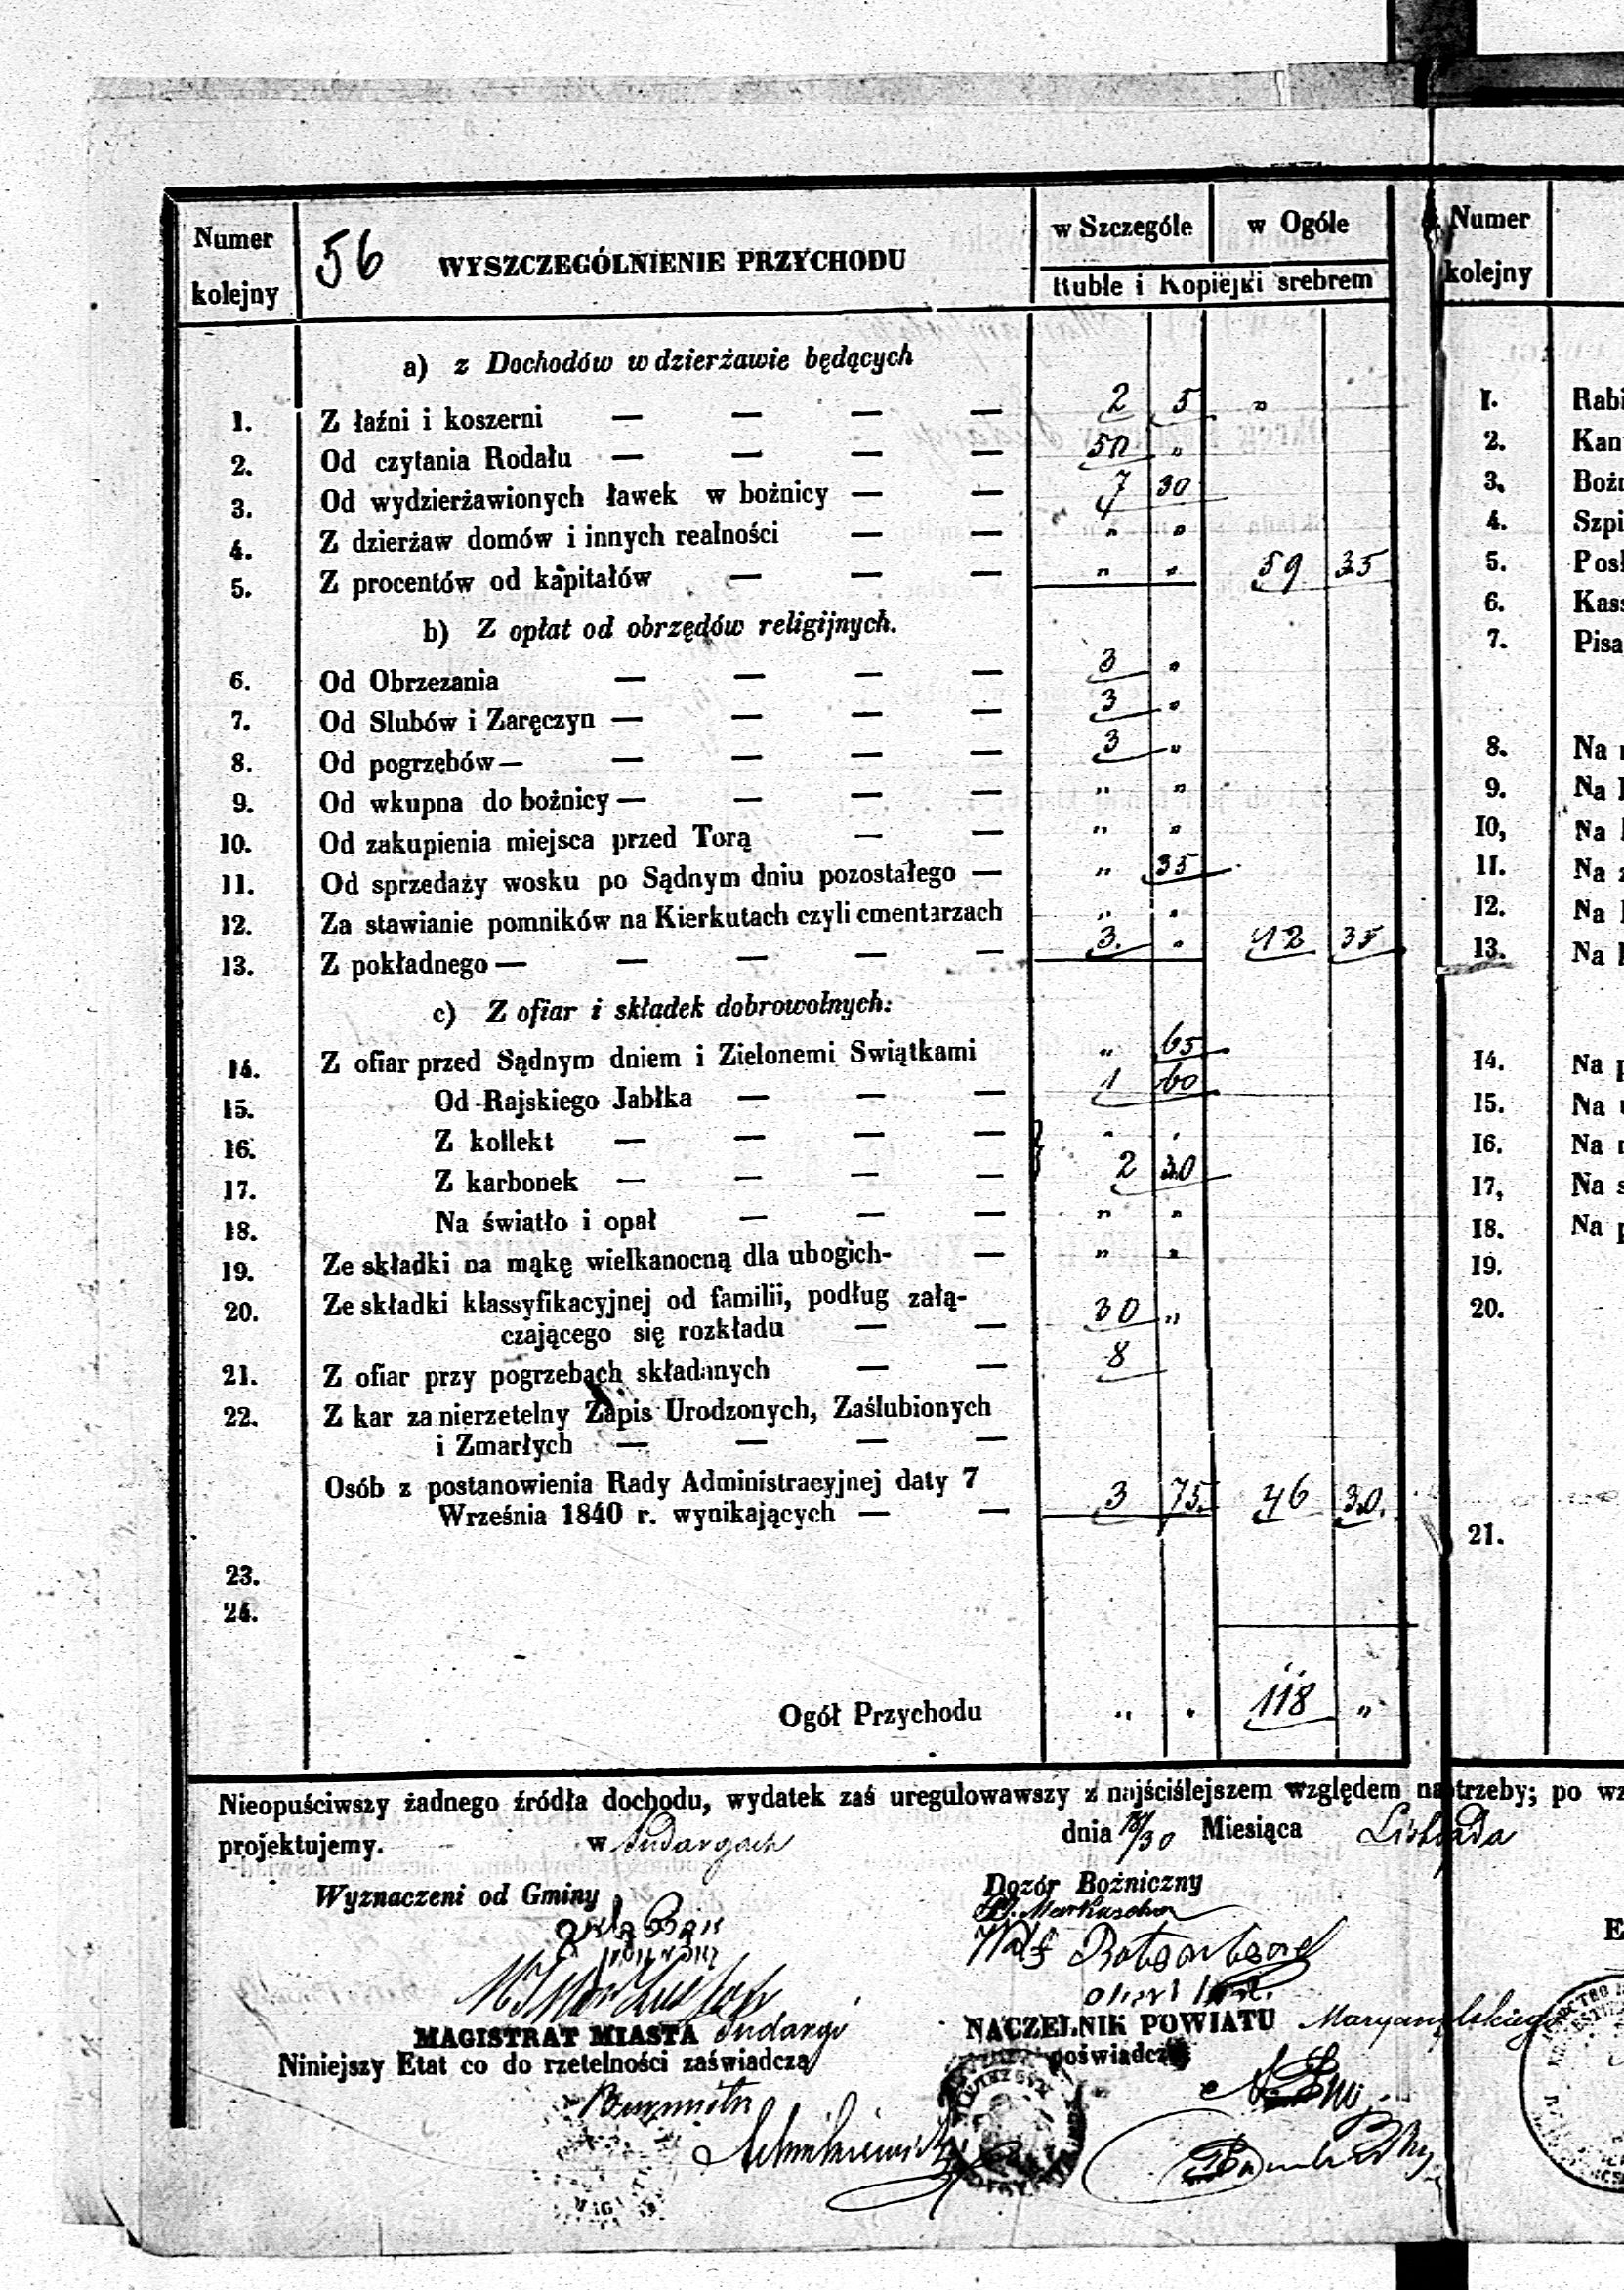 Numer kolejny
56 WYSZCZEGÓLNIENIE PRZYCHODU
w Szczególe w Ogóle
Ruble i Kopiejki srebrem
a) z Dochodów w dzierżawie będących
1. Z łaźni i koszerni — — — — 2 5 „
2. Od czytania Rodału — — — — 50 „
3. Od wydzierżawionych ławek w bożnicy — — 7 30
4. Z dzierżaw domów i innych realności — — „ „
5. Z procentów od kapitałów — — — „ „ 59 35
b) Z opłat od obrzędów religijnych.
6. Od Obrzezania — — — — 3 „
7. Od Slubów i Zaręczyn — — — — 3 „
8. Od pogrzebów — — — — — 3 „
9. Od wkupna do bożnicy — — — — „ „
10. Od zakupienia miejsca przed Torą — — „ „
11. Od sprzedaży wosku po Sądnym dniu pozostałego — „ 35
12. Za stawianie pomników na Kierkutach czyli cmentarzach „ „
13. Z pokładnego — — — — — 3. „ 12 35
c) Z ofiar i składek dobrowolnych:
14. Z ofiar przed Sądnym dniem i Zielonemi Swiątkami „ 65
15. Od Rajskiego Jabłka — — — 1 60
16. Z kollekt — — — — „ „
17. Z karbonek — — — — 2 30
18. Na światło i opał — — — „ „
19. Ze składki na mąkę wielkanocną dla ubogich- — „ „
20. Ze składki klassyfikacyjnej od familii, podług załą-
czającego się rozkładu — — 30 „
21. Z ofiar przy pogrzebach składanych — — 8
22. Z kar za nierzetelny Zapis Urodzonych, Zaślubionych
i Zmarłych — — — —
Osób z postanowienia Rady Administracyjnej daty 7
Września 1840 r. wynikających — — 3 75. 46 30.
23.
24.
Ogół Przychodu „ „ 118 „
Nieopuściwszy żadnego źródła dochodu, wydatek zaś uregulowawszy z najściślejszem względem na potrzeby; po wz
projektujemy. w Sudargach dnia 18/30 Miesiąca Listopada
Wyznaczeni od Gminy
Dozór Bożniczny
MAGISTRAT MIASTA Sudargi
Niniejszy Etat co do rzetelności zaświadcza
Burmistrz
NACZELNIK POWIATU Maryampolskiego
poświadcza
Numer
kolejny
1. Rabi
2. Kan
3. Bożn
4. Szpi
5. Posł
6. Kass
7. Pisa
8. Na
9. Na
10, Na
11. Na
12. Na
13. Na
14. Na
15. Na
16. Na
17, Na
18. Na
19.
20.
21.